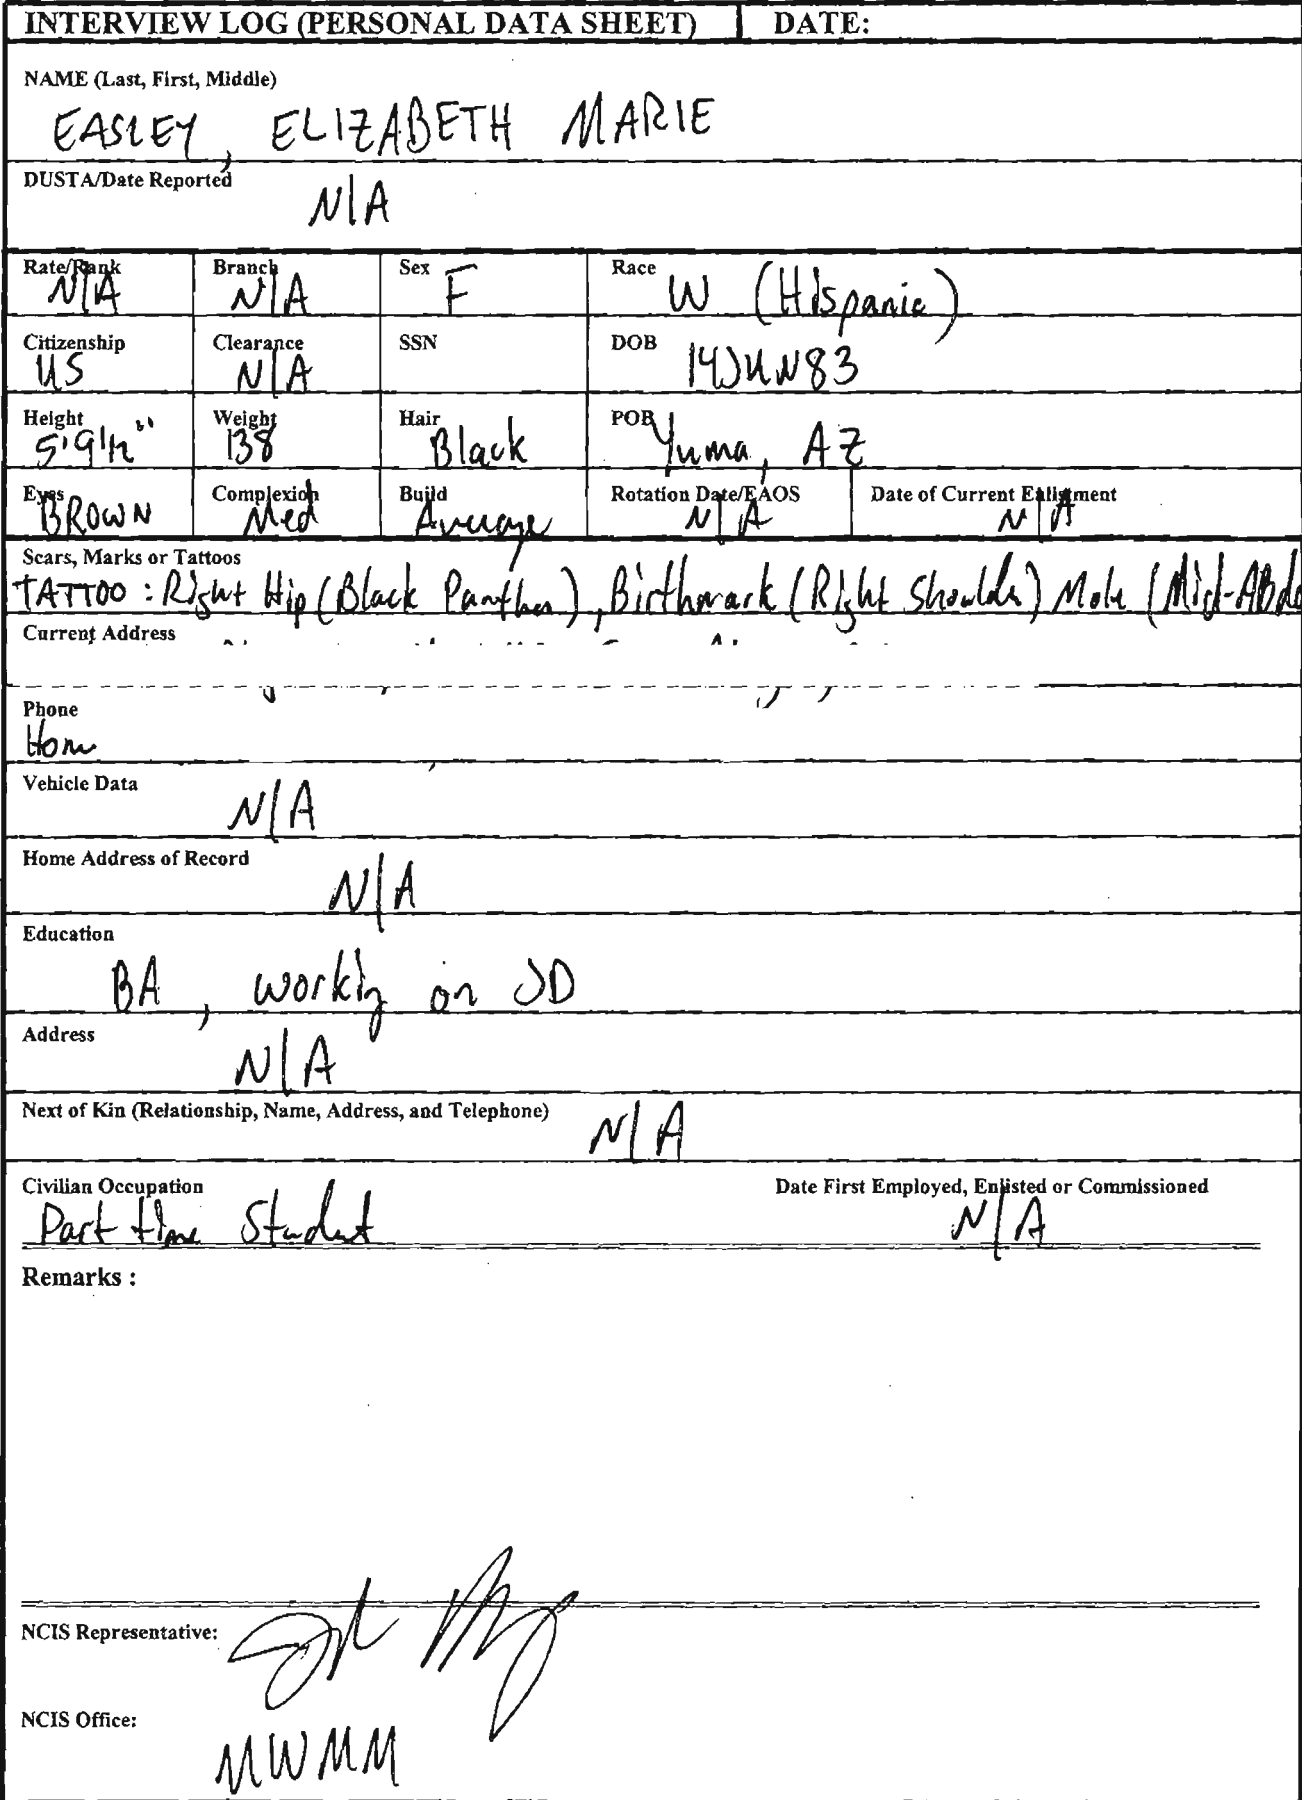 INTERVIEW LOG (PERSONAL DATA SHEET) DATE:
NAME (Last, First, Middle)
EASLEY, ELIZABETH MARIE
DUSTA/Date Reported
N/A
Rate/Rank Branch Sex Race
N/A N/A F W (Hispanic)
Citizenship Clearance SSN DOB
US N/A 14JUN83
Height Weight Hair POB
5'9 1/2" 138 Black Yuma, AZ
Eyes Complexion Build Rotation Date/EAOS Date of Current Enlistment
BROWN Med Average N/A N/A
Scars, Marks or Tattoos
TATTOO: Right Hip (Black Panther), Birthmark (Right Shoulder) Mole (Mid-ABdo
Current Address
Phone
Home
Vehicle Data
N/A
Home Address of Record
N/A
Education
BA, working on JD
Address
N/A
Next of Kin (Relationship, Name, Address, and Telephone)
N/A
Civilian Occupation Date First Employed, Enlisted or Commissioned
Part time Student N/A
Remarks :
NCIS Representative:
NCIS Office:
MWMM